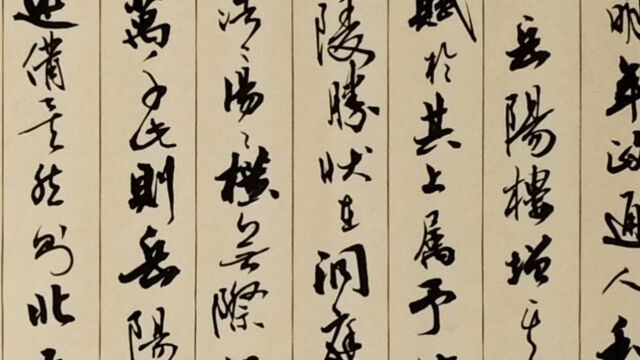 明年政通人和
岳陽樓增其
賦於其上属予
陵勝狀在洞庭
浩〻湯〻橫無際
萬千此則岳陽
述備矣然則北